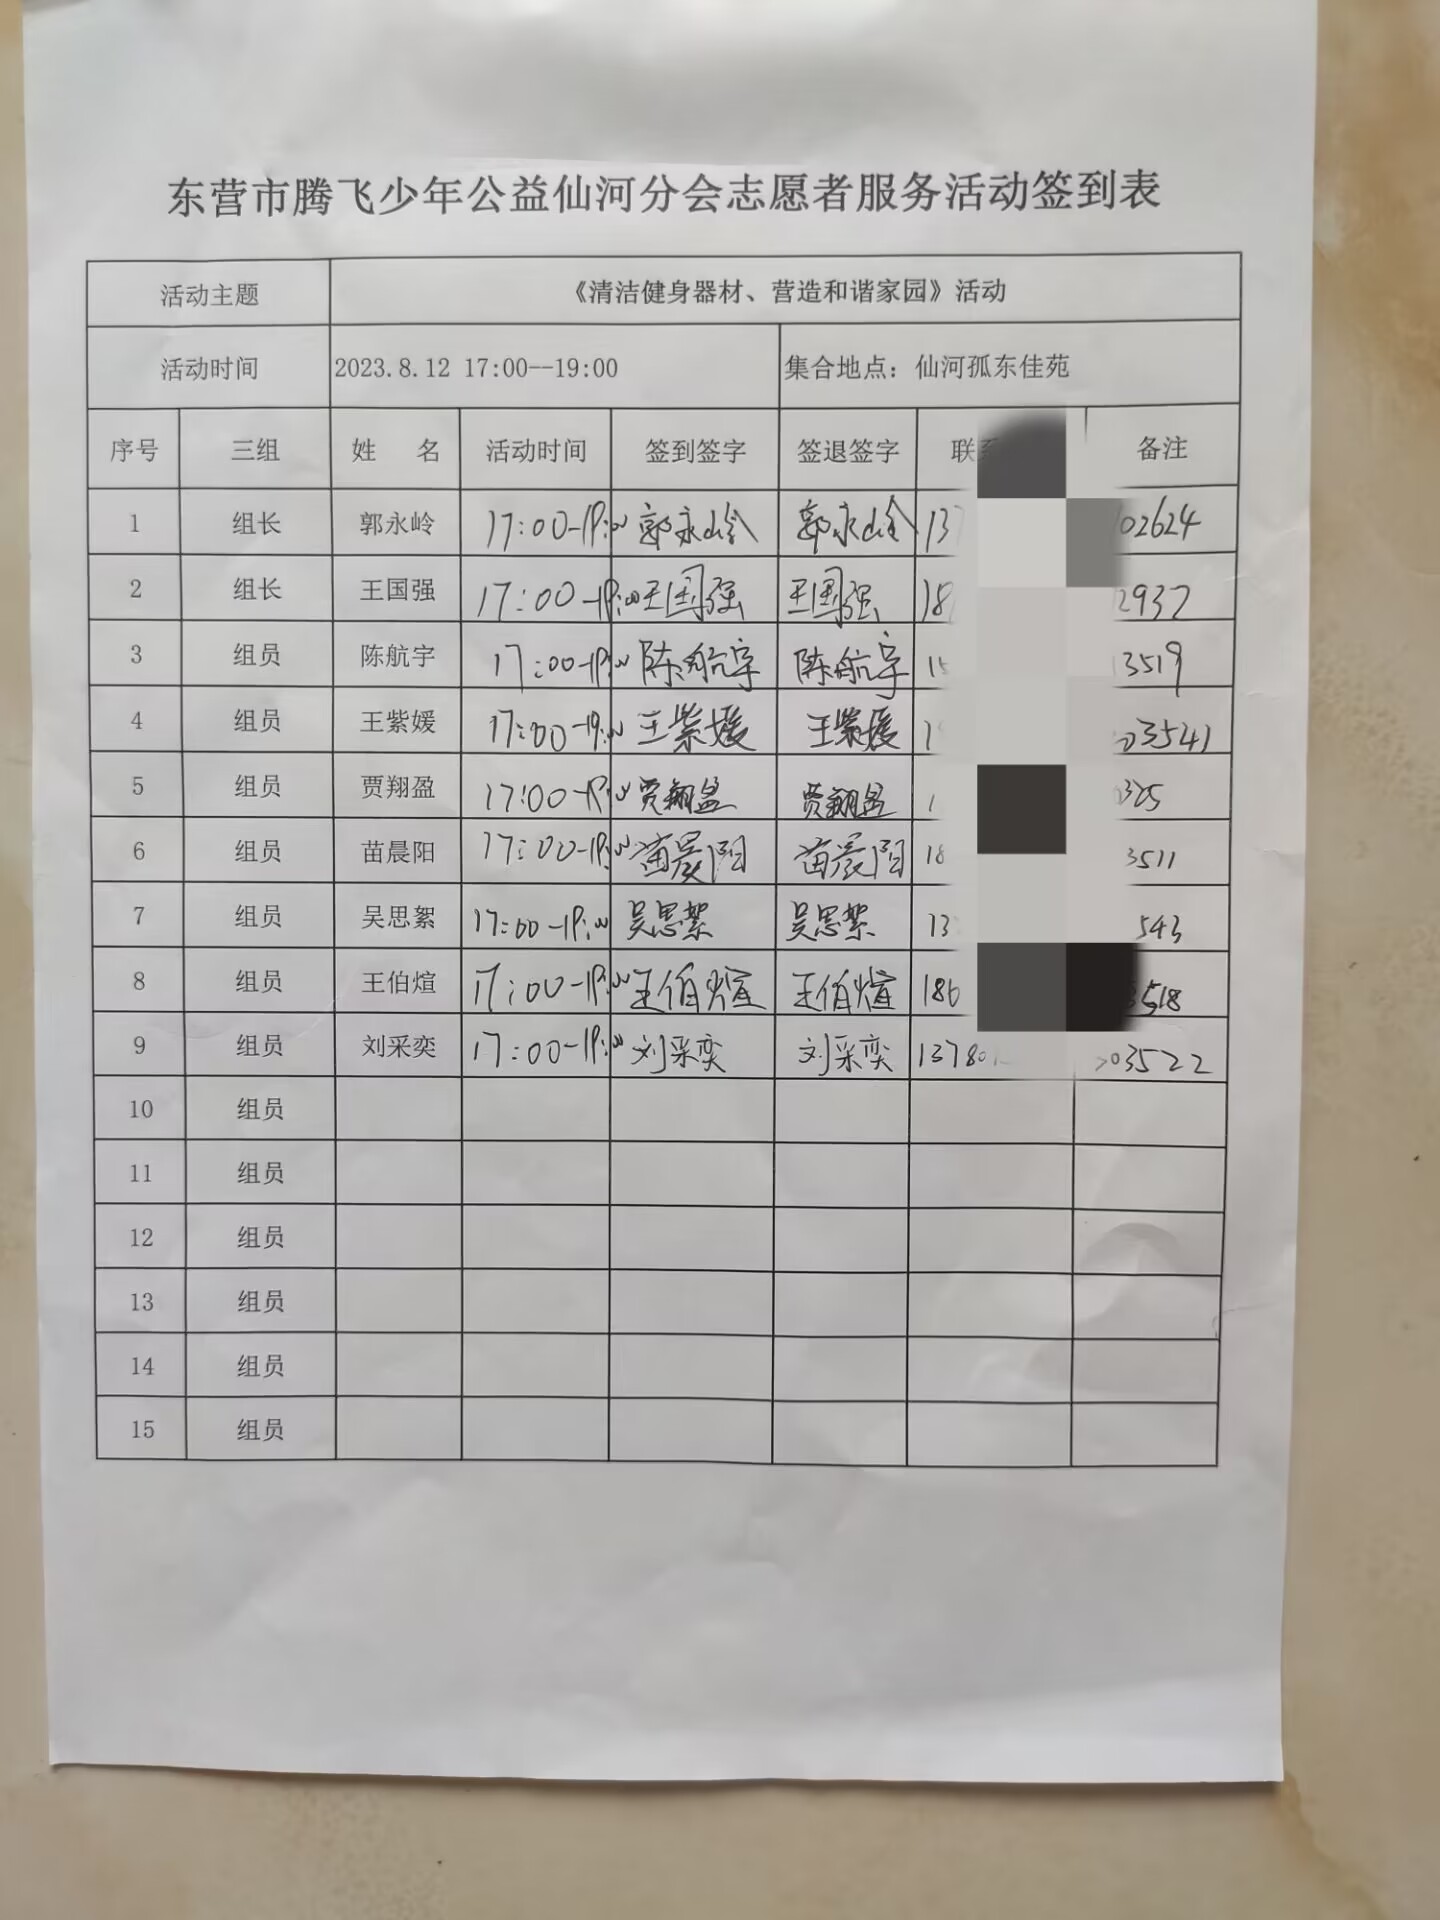 东营市腾飞少年公益仙河分会志愿者服务活动签到表
活动主题 《清洁健身器材、营造和谐家园》活动
活动时间 2023.8.12 17:00--19:00 集合地点：仙河孤东佳苑
序号 三组 姓 名 活动时间 签到签字 签退签字 联 备注
1 组长 郭永岭 17:00-19:00 郭永岭 郭永岭 13 02624
2 组长 王国强 17:00-19:00 王国强 王国强 18 2937
3 组员 陈航宇 17:00-19:00 陈航宇 陈航宇 15 3519
4 组员 王紫媛 17:00-19:00 王紫媛 王紫媛 1 03541
5 组员 贾翔盈 17:00-19:00 贾翔盈 贾翔盈 1 325
6 组员 苗晨阳 17:00-19:00 苗晨阳 苗晨阳 18 3511
7 组员 吴思絮 17:00-19:00 吴思絮 吴思絮 13 543
8 组员 王伯煊 17:00-19:00 王伯煊 王伯煊 186 3518
9 组员 刘采奕 17:00-19:00 刘采奕 刘采奕 1378 03522
10 组员
11 组员
12 组员
13 组员
14 组员
15 组员